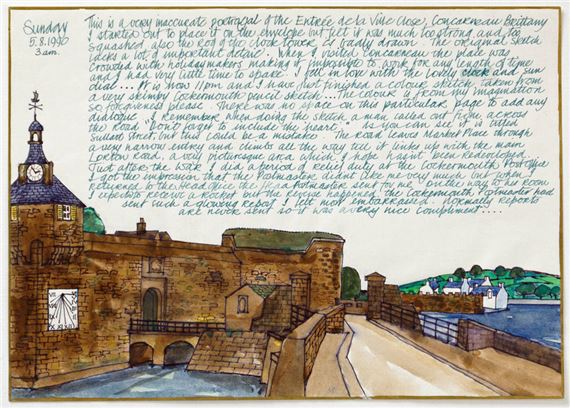 Sunday
5.8.1990
3am.
This is a very inaccurate portrayal of the Entrée de la Ville Close, Concarneau Brittany
I started out to place it on the envelope but felt it was much too strong and too
squashed also the roof of the clock tower is badly drawn. The original sketch
lacks a lot of important detail. When I visited Concarneau the place was
crowded with holidaymakers making it impossible to work for any length of time
and I had very little time to spare. I fell in love with the lovely clock and sun
dial... It is now 11am and I have just finished a colour sketch, taken from
a very skimpy Cockermouth pencil sketch. The colour is from my imagination
so forgiveness please. There was no space on this particular page to add any
dialogue. I remember when doing the sketch, a man called out from across
the road "Don't forget to include the 'hearse'" As you can see it is called
Street but this could be a mistake. The road leaves Market Place through
a very narrow entry and climbs all the way till it links up with the main
Lorton Road, a very picturesque area which I hope hasn't been redeveloped
Just after the war I did a period of relief duty at the Cockermouth Post Office
I got the impression that the Postmaster didn't like me very much but when I
returned to the Head Office the Head Postmaster sent for me. On the way to his room
I expected to receive a rocket but the reverse happened the Cockermouth Postmaster had
sent such a glowing report I felt most embarrassed. Normally reports
are never sent so it was a very nice compliment....